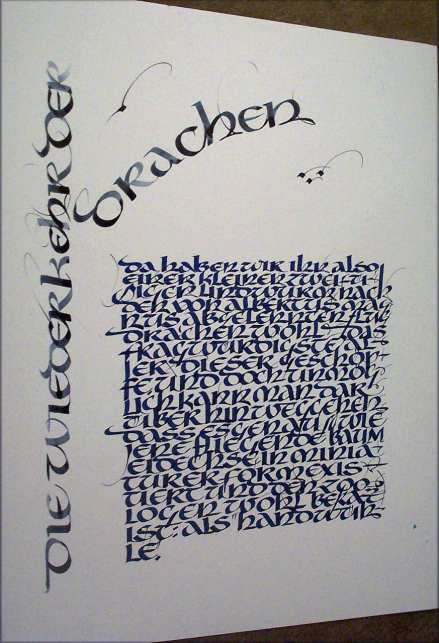 DIE WIEDERKEHR DER
DRACHEN
DA HABEN WIR IHN ALSO
EINEN KLEINEN
LINDWURM NACH
DEM VON ALBERTUS MAG
NUS ABGELEHNTEN FLUG
DRACHEN WOHL DAS
FRAGWÜRDIGSTE AL
LER DIESER GESCHÖP
FE UND DOCH UNMÖG
LICH KANN MAN DAR
ÜBER HINWEGGEHEN
DASS ES GENAU WIE
JENE FLIEGENDE BAUM
EIDECHSE IN MINIA
TURER FORM EXIS
TIERT UND DEN ZOO
LOGEN WOHL BEKA
IST: ALS HANDWÜH
LE.